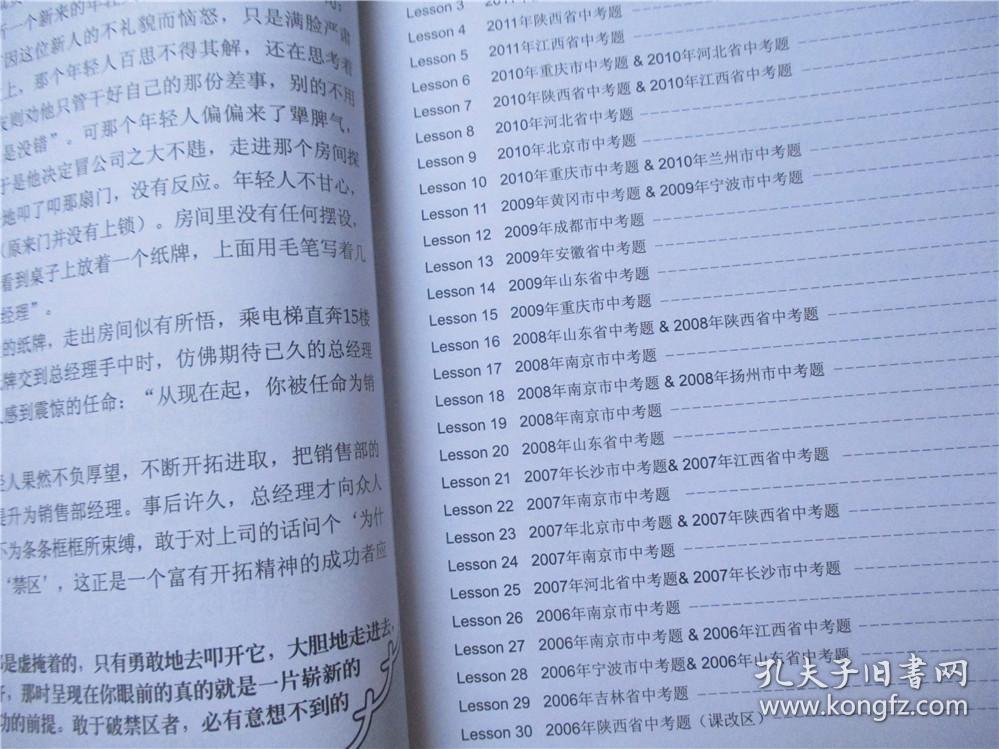 一个新来的年轻
因这位新人的不礼貌而恼怒，只是满脸严肃
上，那个年轻人百思不得其解，还在思考着
则劝他只管干好自己的那份差事，别的不用
是没错”。可那个年轻人偏偏来了犟脾气，
于是他决定冒公司之大不韪，走进那个房间探
地叩了叩那扇门，没有反应。年轻人不甘心，
（原来门并没有上锁）。房间里没有任何摆设，
看到桌子上放着一个纸牌，上面用毛笔写着几
经理”。
的纸牌，走出房间似有所悟，乘电梯直奔15楼
牌交到总经理手中时，仿佛期待已久的总经理
感到震惊的任命：“从现在起，你被任命为销
人果然不负厚望，不断开拓进取，把销售部的
提升为销售部经理。事后许久，总经理才向众人
不为条条框框所束缚，敢于对上司的话问个‘为什
‘禁区’，这正是一个富有开拓精神的成功者应
是虚掩着的，只有勇敢地去叩开它，大胆地走进去，
，那时呈现在你眼前的真的就是一片崭新的
功的前提。敢于破禁区者，必有意想不到的
Lesson 3 2011年
Lesson 4 2011年陕西省中考题
Lesson 5 2011年江西省中考题
Lesson 6 2010年重庆市中考题 & 2010年河北省中考题
Lesson 7 2010年陕西省中考题 & 2010年江西省中考题
Lesson 8 2010年河北省中考题
Lesson 9 2010年北京市中考题
Lesson 10 2010年重庆市中考题 & 2010年兰州市中考题
Lesson 11 2009年黄冈市中考题 & 2009年宁波市中考题
Lesson 12 2009年成都市中考题
Lesson 13 2009年安徽省中考题
Lesson 14 2009年山东省中考题
Lesson 15 2009年重庆市中考题
Lesson 16 2008年山东省中考题 & 2008年陕西省中考题
Lesson 17 2008年南京市中考题
Lesson 18 2008年南京市中考题 & 2008年扬州市中考题
Lesson 19 2008年南京市中考题
Lesson 20 2008年山东省中考题
Lesson 21 2007年长沙市中考题& 2007年江西省中考题
Lesson 22 2007年南京市中考题
Lesson 23 2007年北京市中考题 & 2007年陕西省中考题
Lesson 24 2007年南京市中考题
Lesson 25 2007年河北省中考题& 2007年长沙市中考题
Lesson 26 2006年南京市中考题
Lesson 27 2006年南京市中考题 & 2006年江西省中考题
Lesson 28 2006年宁波市中考题& 2006年山东省中考题
Lesson 29 2006年吉林省中考题
Lesson 30 2006年陕西省中考题（课改区）
孔夫子旧书网
www.kongfz.com